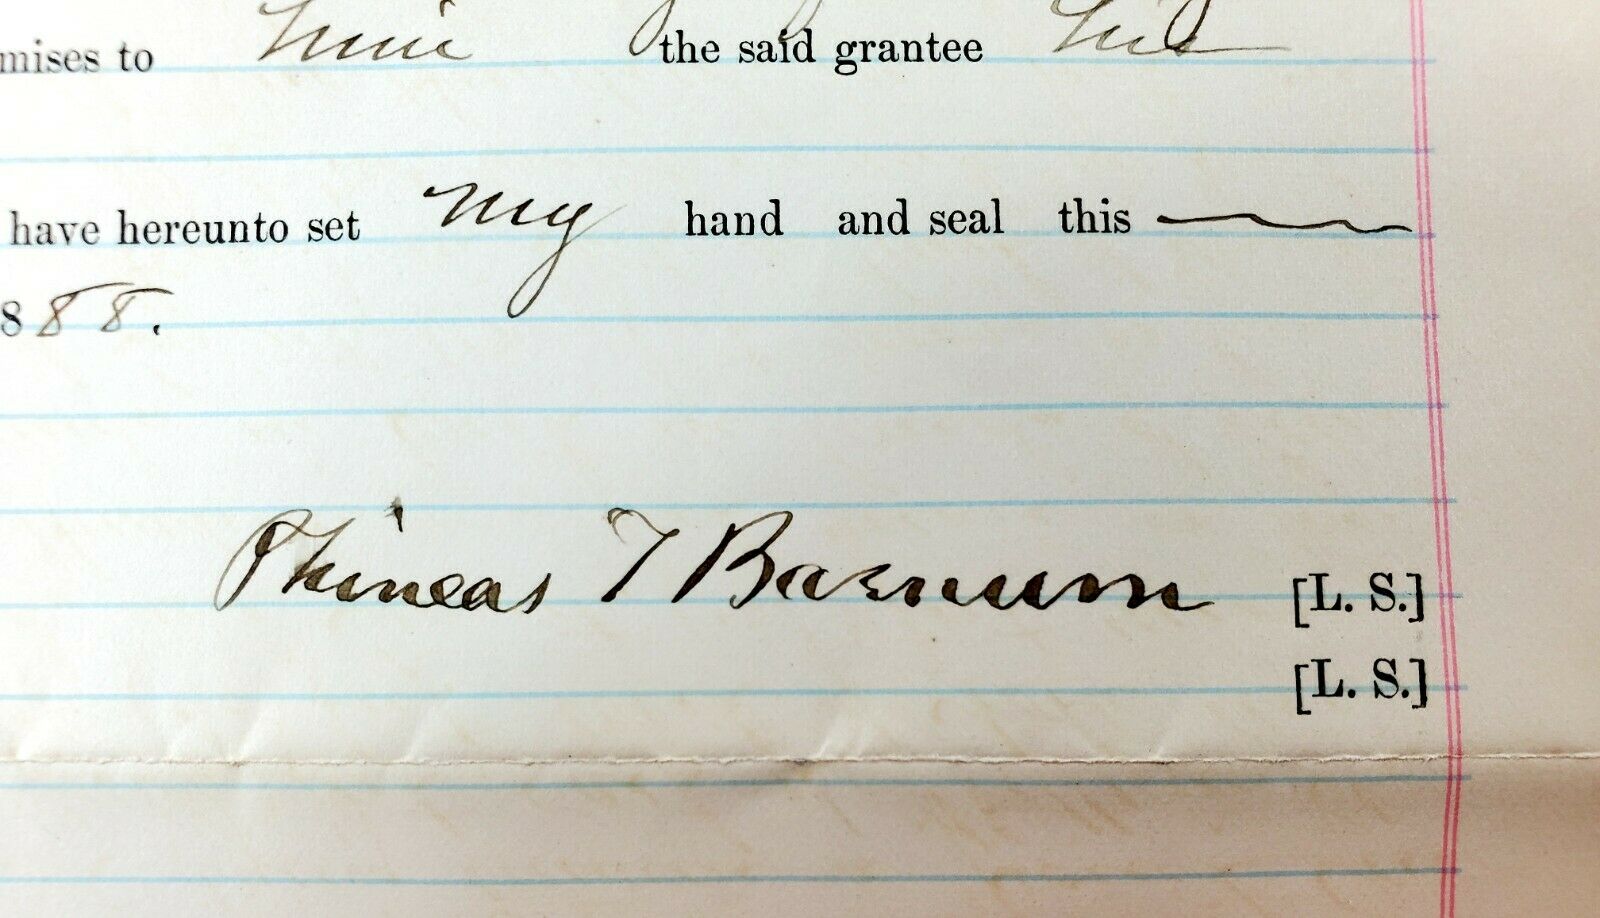 mises to him the said grantee his
have hereunto set my hand and seal this
888.
Phineas T Barnum [L. S.]
[L. S.]